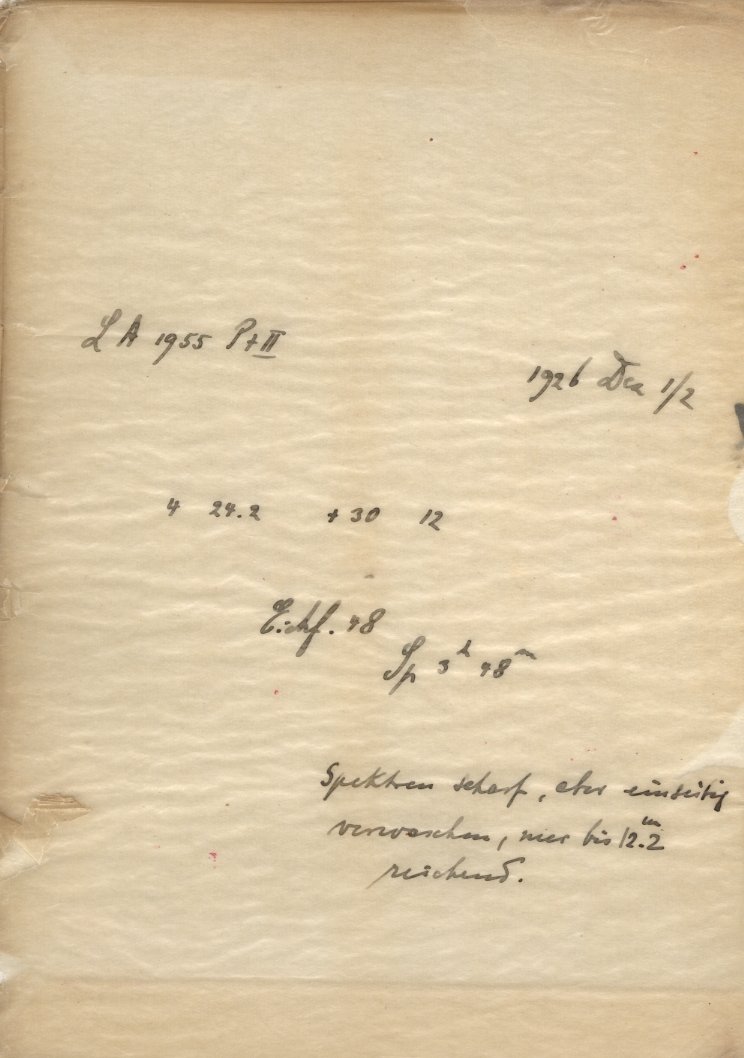 L A 1955 P+II
1926 Dez 1/2
4 24.2 +30 12
Eichf. 48
Sp 3h 48m
Spektren scharf, aber einseitig
verwaschen, nur bis 12.m2
reichend.